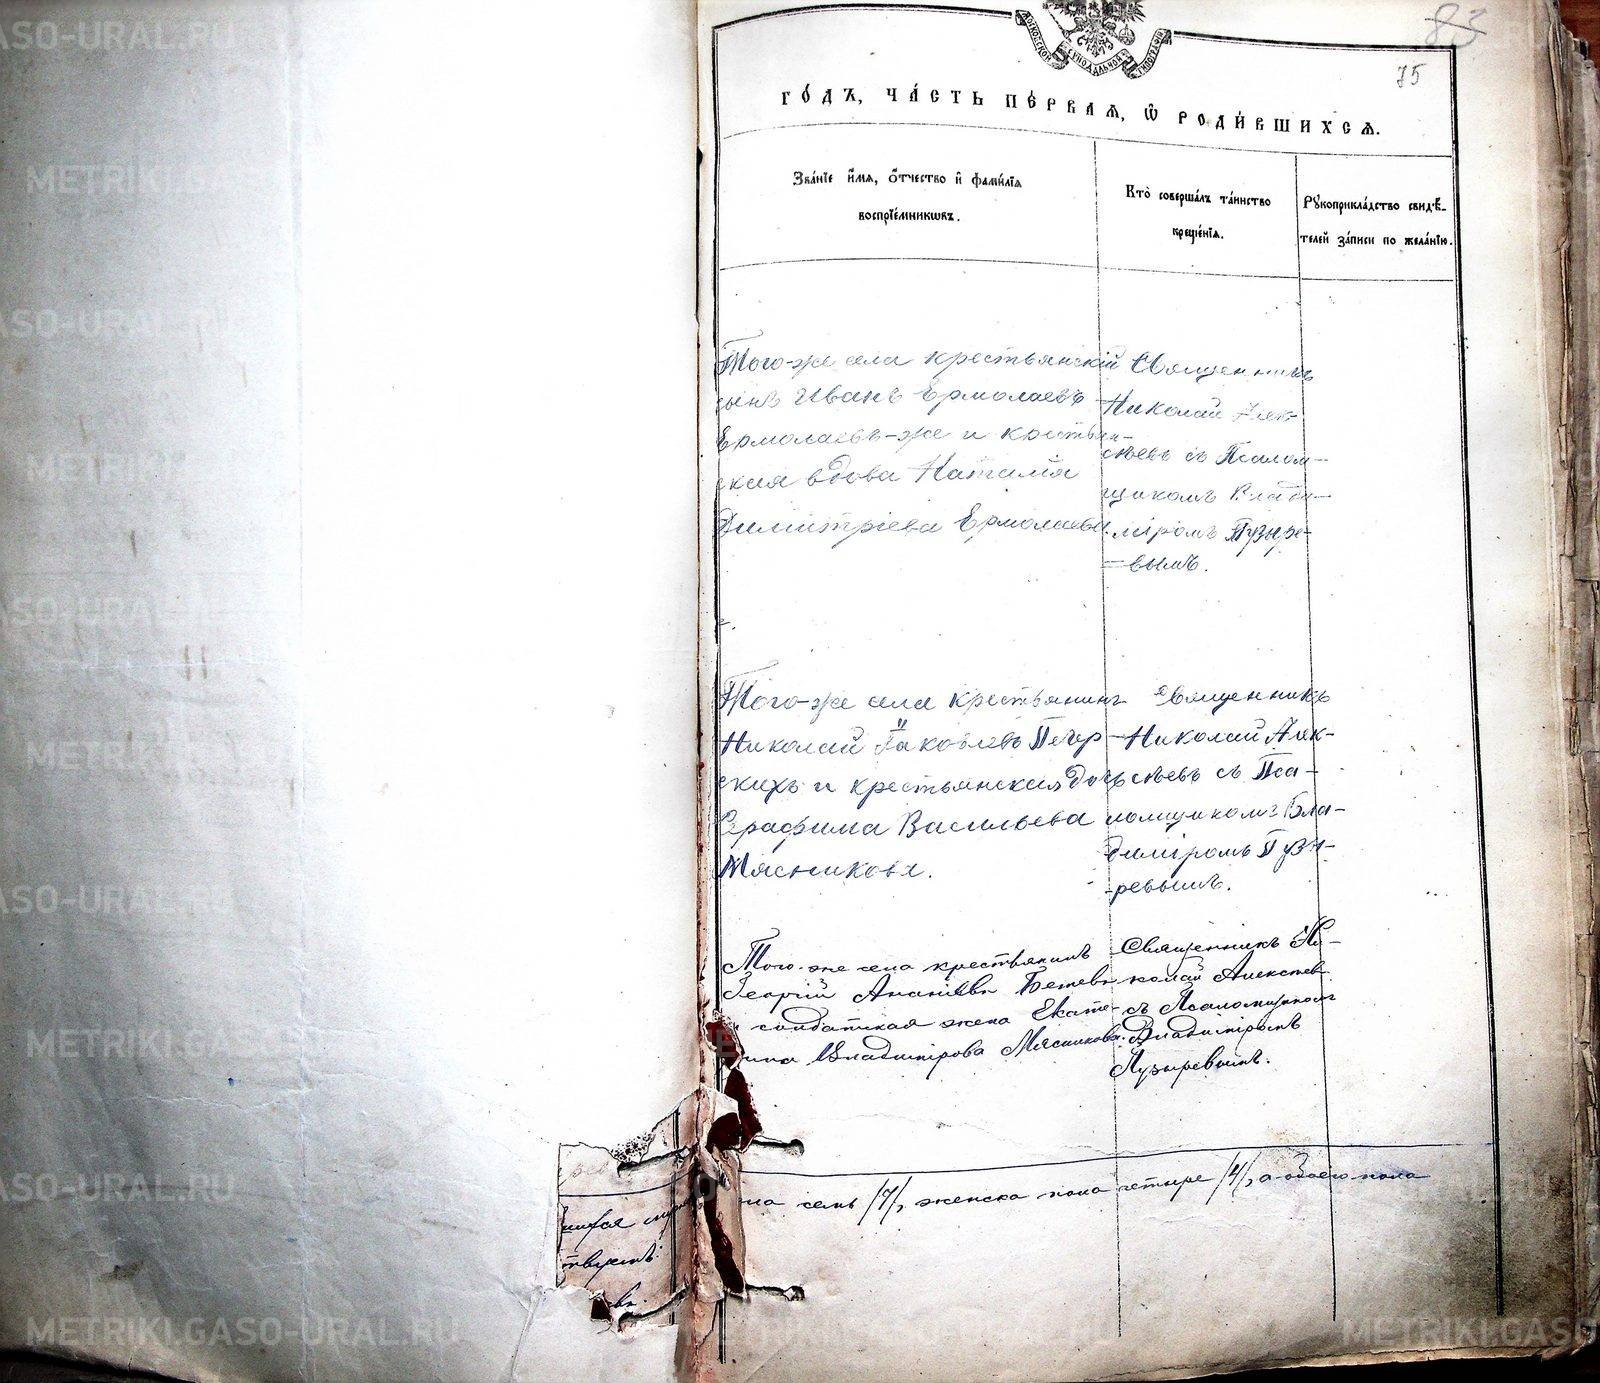 GASO-URAL.RU
METRIKI.GASO-URAL.RU
83
75
МОСКОВСКОЙ СѴНОДАЛЬНОЙ ТИПОГРАФІИ
ГО́ДЪ, ЧА́СТЬ ПЕ́РВАЯ, Ѽ РОДИ́ВШИХСЯ.
Зва́нїе и҆́мя, о҆́тчество и҆ фами́лїя
воспрїе́мникѡвъ.
Кто̀ соверша́лъ та́инство
креще́нїя.
Рꙋкоприкла́дство свидѣ́-
телей за́писи по жела́нїю.
Того-же села крестьянскій
сынъ Иванъ Ермолаевъ
Ермолаевъ-же и крестьян-
ская вдова Наталія
Димитріева Ермолаева.
Священникъ
Николай Алек-
сѣевъ съ Псалом-
щикомъ Влади-
міромъ Пузыре-
вымъ.
Того-же села крестьянинъ
Николай Іаковлевъ Петер-
скихъ и крестьянская дочь
Серафима Васильева
Мясникова.
Священникъ
Николай Алек-
сѣевъ съ Пса-
ломщикомъ Вла-
диміромъ Пузы-
ревымъ.
Того-же села крестьянинъ
Георгій Ананіевъ Бетевъ
солдатская жена Екате-
рина Владимірова Мясникова.
Священникъ Ни-
колай Алексѣев
съ Псаломщикомъ
Владиміромъ
Пузыревымъ.
ла семь /7/, женска пола четыре /4/, а обоего пола